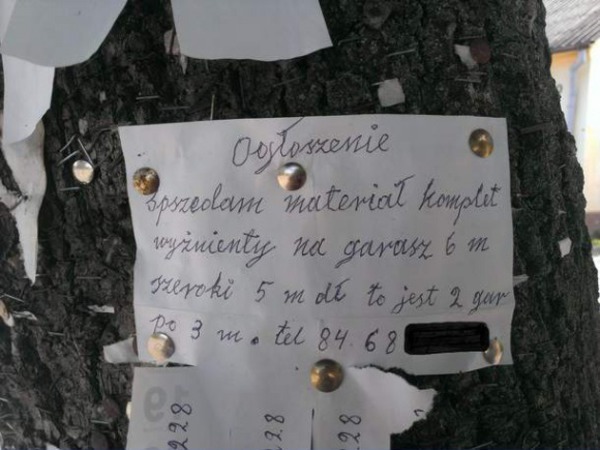 Ogłoszenie
spszedam materiał komplet
wyżnienty na garasz 6 m
szeroki 5 m dł to jest 2 gar
po 3 m. tel 84 68
228
228
228